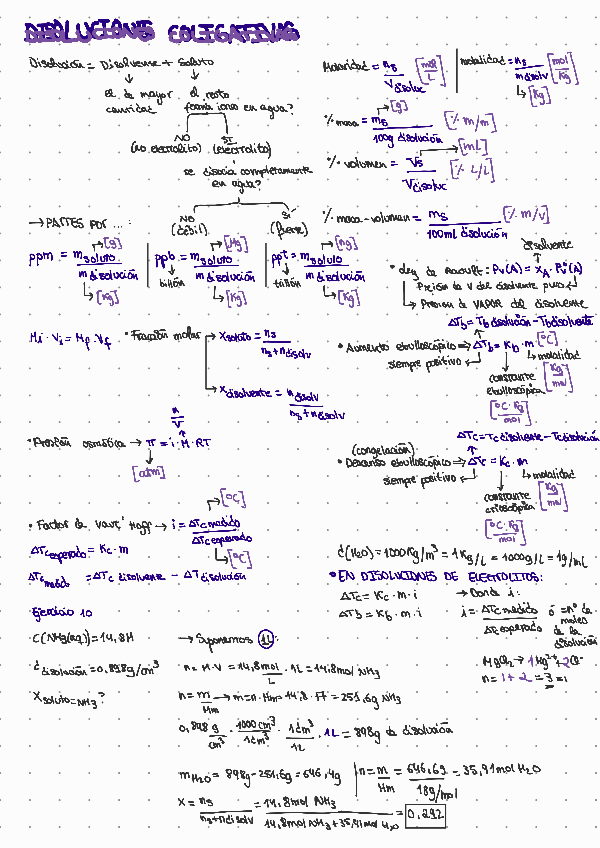 DISOLUCIONES COLIGATIVAS
Disolución = Disolvente + Soluto
el de mayor cantidad
el resto
forma iones en agua?
NO
(no electrolito)
SI
(electrolito)
se disocia completamente
en agua?
NO
(débil)
SI
(fuerte)
→ PARTES POR ... :
ppm = m soluto / m disolución
[g]
[Kg]
ppb = m soluto / m disolución
billón
[μg]
[Kg]
ppt = m soluto / m disolución
trillón
[ng]
[Kg]
Mi · Vi = Mf · Vf
• Fracción molar
x soluto = ns / ns + n disolv
x disolvente = n disolv / ns + n disolv
• Presión osmótica → π = i · M · RT
n / V
[atm]
• Factor de Vant' Hoff → i = ΔTc medido / ΔTc esperado
[°C]
[°C]
ΔTc esperado = Kc · m
ΔTc medido = ΔTc disolvente − ΔT disolución
Molaridad = ns / V disoluc [mol / L]
molalidad = ns / m disolv [mol / Kg]
[Kg]
% masa = ms / 100g disolución [% m/m]
[g]
% volumen = Vs / V disoluc [% L/L]
[mL]
% masa-volumen = ms / 100mL disolución [% m/v]
disolvente
• Ley de Raoult: Pv(A) = xA · P°v(A)
Presión de V del disolvente puro
Presión de VAPOR del disolvente
ΔTb = Tb disolución − Tb disolvente
• Aumento ebulloscópico ⇒ ΔTb = Kb · m
[°C]
siempre positivo
molalidad
constante
ebulloscópica
[Kg / mol]
[°C · Kg / mol]
ΔTc = Tc disolvente − Tc disolución
(congelación)
• Descenso ebulloscópico ⇒ ΔTc = Kc · m
siempre positivo
molalidad
constante
crioscópica
[Kg / mol]
[°C · Kg / mol]
d(H₂O) = 1000Kg/m³ = 1Kg/L = 1000g/L = 1g/mL
• EN DISOLUCIONES DE ELECTROLITOS:
ΔTc = Kc · m · i
ΔTb = Kb · m · i
→ Donde i:
i = ΔTc medido / ΔTc esperado ó = nº de moles de la disolución
MgCl₂ → 1Mg²⁺ + 2Cl⁻
n = 1 + 2 = 3 = i
Ejercicio 10
C(NH₃(aq)) = 14,8M
→ Suponemos 1L:
d disolución = 0,898g/cm³
n = M · V = 14,8 mol / L · 1L = 14,8mol NH₃
X soluto = NH₃ ?
n = m / Mm → m = n · Mm = 14,8 · 17 = 251,6g NH₃
0,898 g / cm³ · 1000cm³ / 1dm³ · 1dm³ / 1L · 1L = 898g de disolución
m H₂O = 898g − 251,6g = 646,4g
n = m / Mm = 646,6g / 18g/mol = 35,91mol H₂O
X = ns / ns + n disolv = 14,8mol NH₃ / 14,8mol NH₃ + 35,91mol H₂O = 0,292